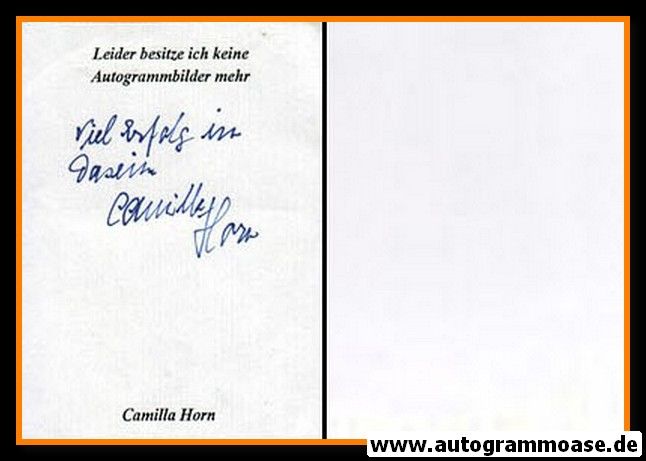 Leider besitze ich keine
Autogrammbilder mehr
Viel Erfolg im
Dasein
Camilla
Horn
Camilla Horn
www.autogrammoase.de